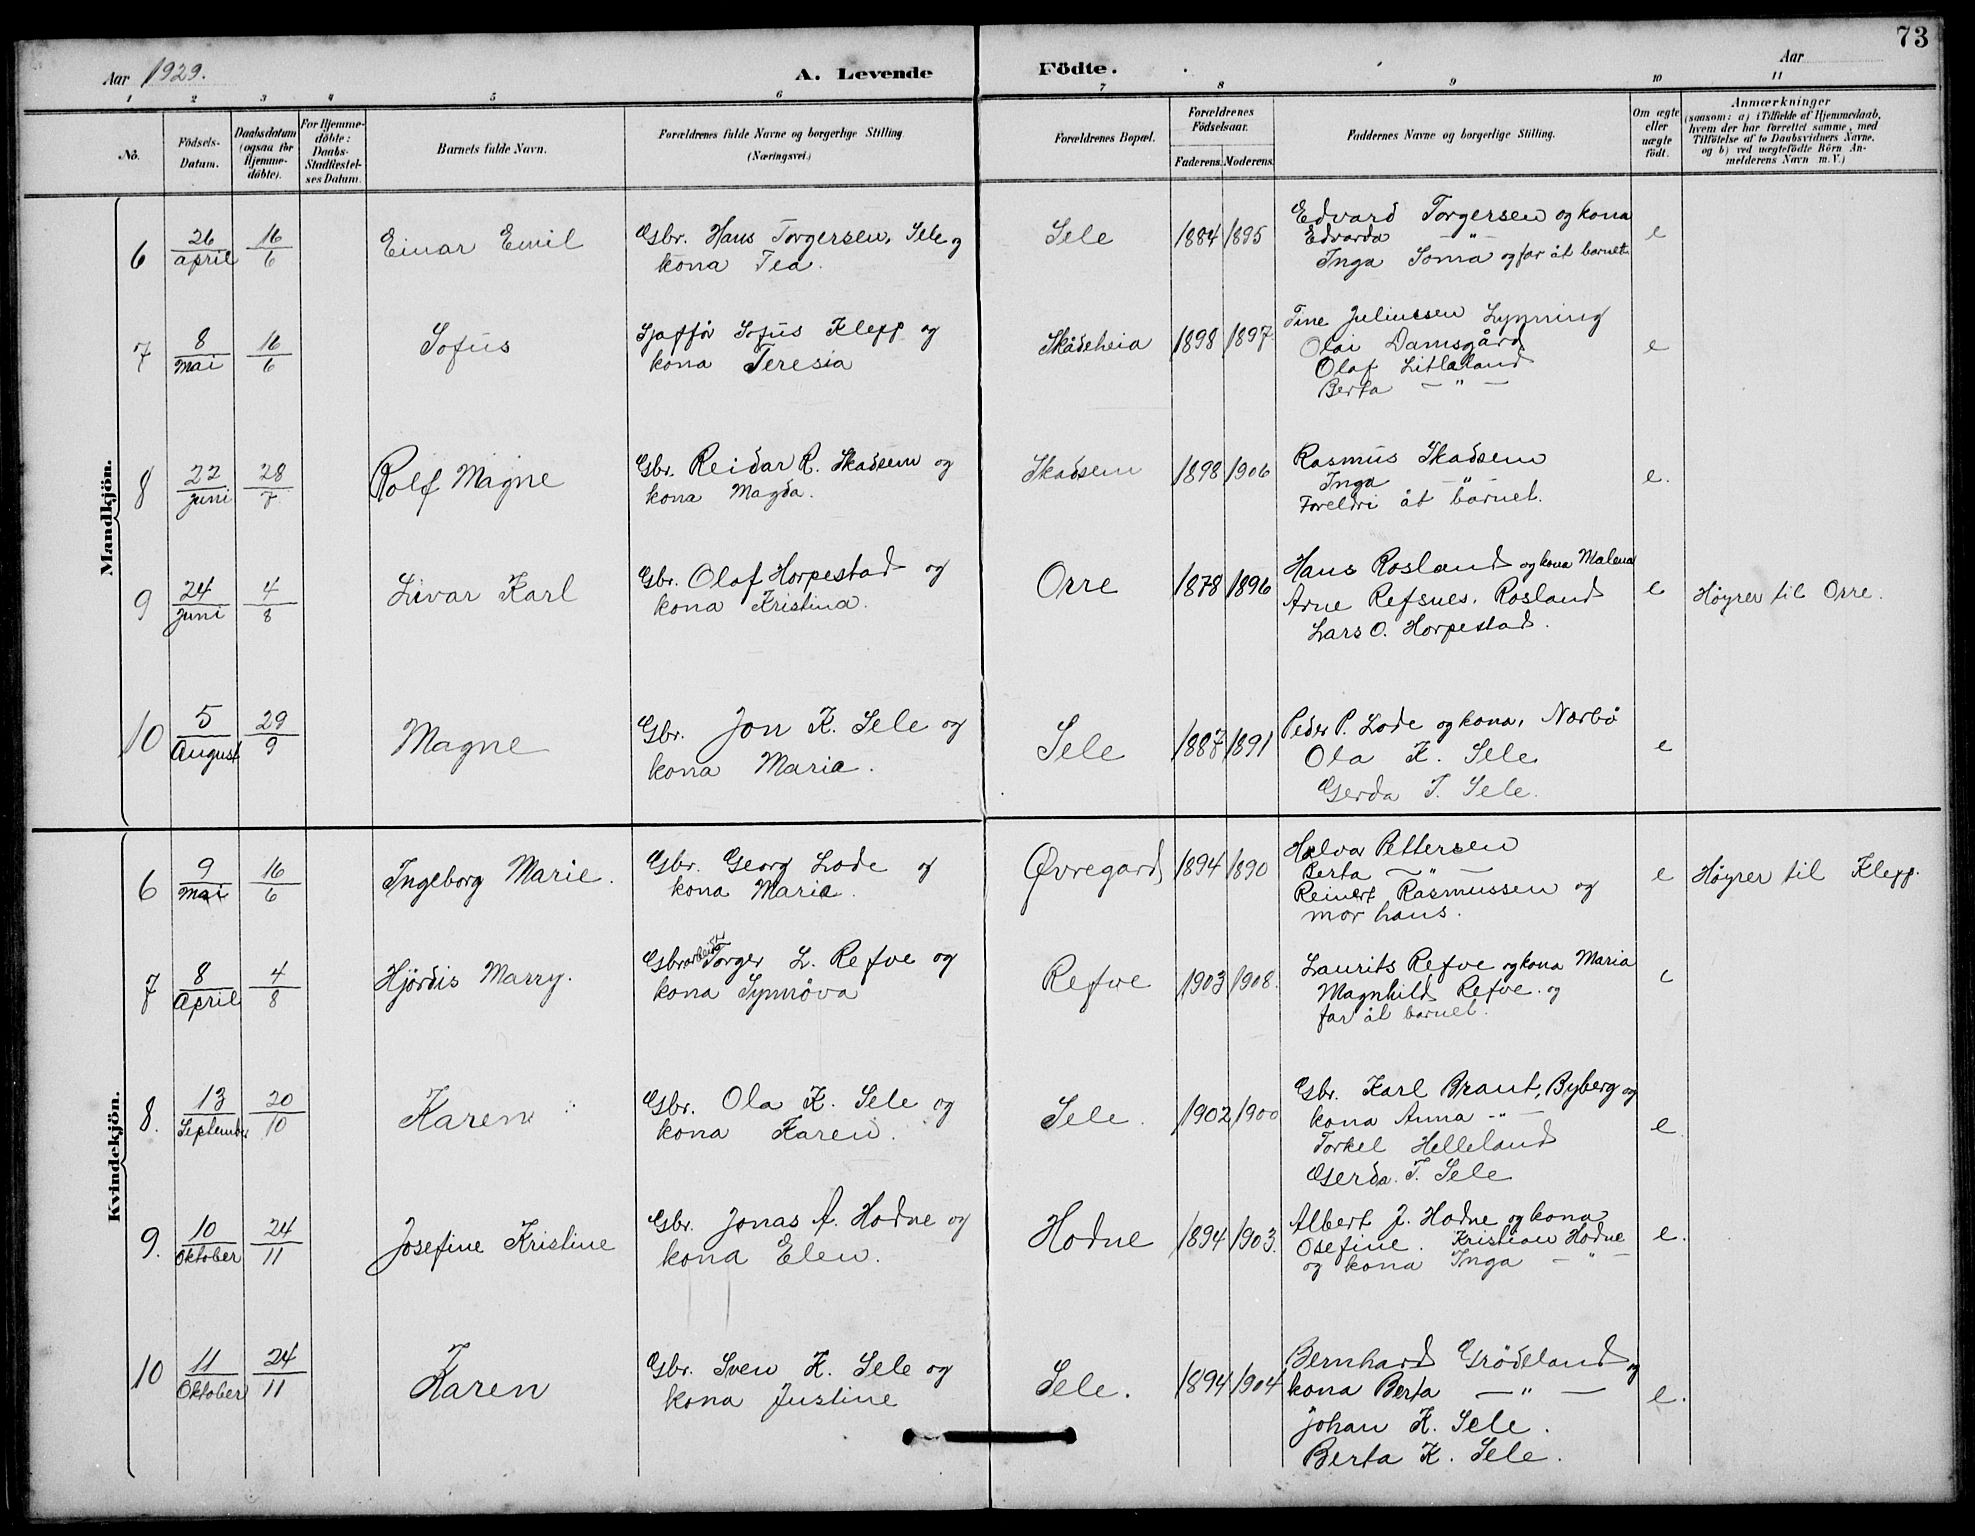 73
Aar 1929.
A. Levende Födte.
Aar
1 2 3 4 5 6 7 8 9 10 11
No.
Födsels-Datum.
Daabsdatum (ogsaa for Hjemme-döbte).
For Hjemme-döbte: Daabs-Stadfæstel-ses Datum.
Barnets fulde Navn.
Forældrenes fulde Navne og borgerlige Stilling (Næringsvei.)
Forældrenes Bopæl.
Forældrenes Födselsaar.
Faderens. Moderens.
Faddernes Navne og borgerlige Stilling.
Om ægte eller uægte födt.
Anmærkninger
(saasom: a) i Tilfælde af Hjemmedaab,
hvem der har forrettet samme, med
Tilföielse af to Daabsvidners Navne.
og b) ved uægtefödte Börn An-
melderens Navn m. V.)
Mandkjön.
6 26/april 16/6 Einar Emil Gbr. Hans Torgersen, Sele og
kona Tea.
Sele 1884 1895 Edvard Torgersen og kona
Edvarda — " —
Inga Soma og far åt barnet
e
7 8/Mai 16/6 Sofus Sjaffør Sofus Klepp og
kona Teresia
Skådeheia 1898 1897 Tine Juliussen Lynning
Olai Damsgård
Olaf Litlaland
Berta — " —
e
8 22/juni 28/7 Rolf Magne Gbr. Reidar R. Skadsem og
kona Magda.
Skadsem 1898 1906 Rasmus Skadsem
Inga — " —
Foreldri åt barnet.
e.
9 24/juni 4/8 Livar Karl Gbr. Olaf Horpestad og
kona Kristina.
Orre 1878 1896 Hans Rosland og kona Malena
Arne Refsnes, Rosland
Lars O. Horpestad.
e Høyrer til Orre.
10 5/August 29/9 Magne Gbr. Jon K. Sele og
kona Maria.
Sele 1887 1891 Peder P. Lode og kona, Nærbø
Ola K. Sele
Gerda T. Sele.
e
Kvindekjön.
6 9/Mai 16/6 Ingeborg Marie. Gbr. Georg Lode og
kona Maria.
Øvregard 1894 1890 Halvor Pettersen
Berta — " —
Reinert Rasmussen og
mor hans.
e Høyrer til Klepp.
7 8/April 4/8 Hjördis Marry. Gbrarbeid. Torger L. Refve og
kona Synnöva
Refve 1903 1908. Laurits Refve og kona Maria
Magnhild Refve. og
far åt barnet.
e
8. 13/September 20/10 Karen Gbr. Ola K. Sele og
kona Karen.
Sele. 1902 1900 Gbr. Karl Braut, Byberg og
kona Anna — " —
Torkel Helleland
Gerda. T. Sele
e
9. 10/Oktober 24/11 Josefine Kristine Gbr. Jonas A. Hodne og
kona Elen.
Hodne 1894 1903. Albert J. Hodne og kona
Osefine. Kristian Hodne
og kona Inga — " —
e.
10 11/Oktober 24/11 Karen Gbr. Sven K. Sele og
kona Justine
Sele. 1894 1904 Bernhard Grödeland og
kona Berta — " —
Johan K. Sele.
Berta K. Sele.
e.